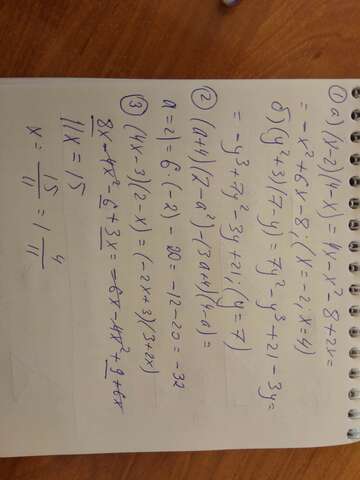 ① а) (x-2)(4-x) = 4x - x² - 8 + 2x =
= -x² + 6x - 8; (x = -2; x = 4)
б) (y²+3)(7-y) = 7y² - y³ + 21 - 3y =
= -y³ + 7y² - 3y + 21; (y = 7)
② (a+4)(2-a²) - (3a+4)(4-a) =
a = 2) = 6·(-2) - 20 = -12 - 20 = -32
③ (4x-3)(2-x) = (-2x+3)(3+2x)
8x - 4x² - 6 + 3x = -6x - 4x² + 9 + 6x
11x = 15
x = 15/11 = 1 4/11